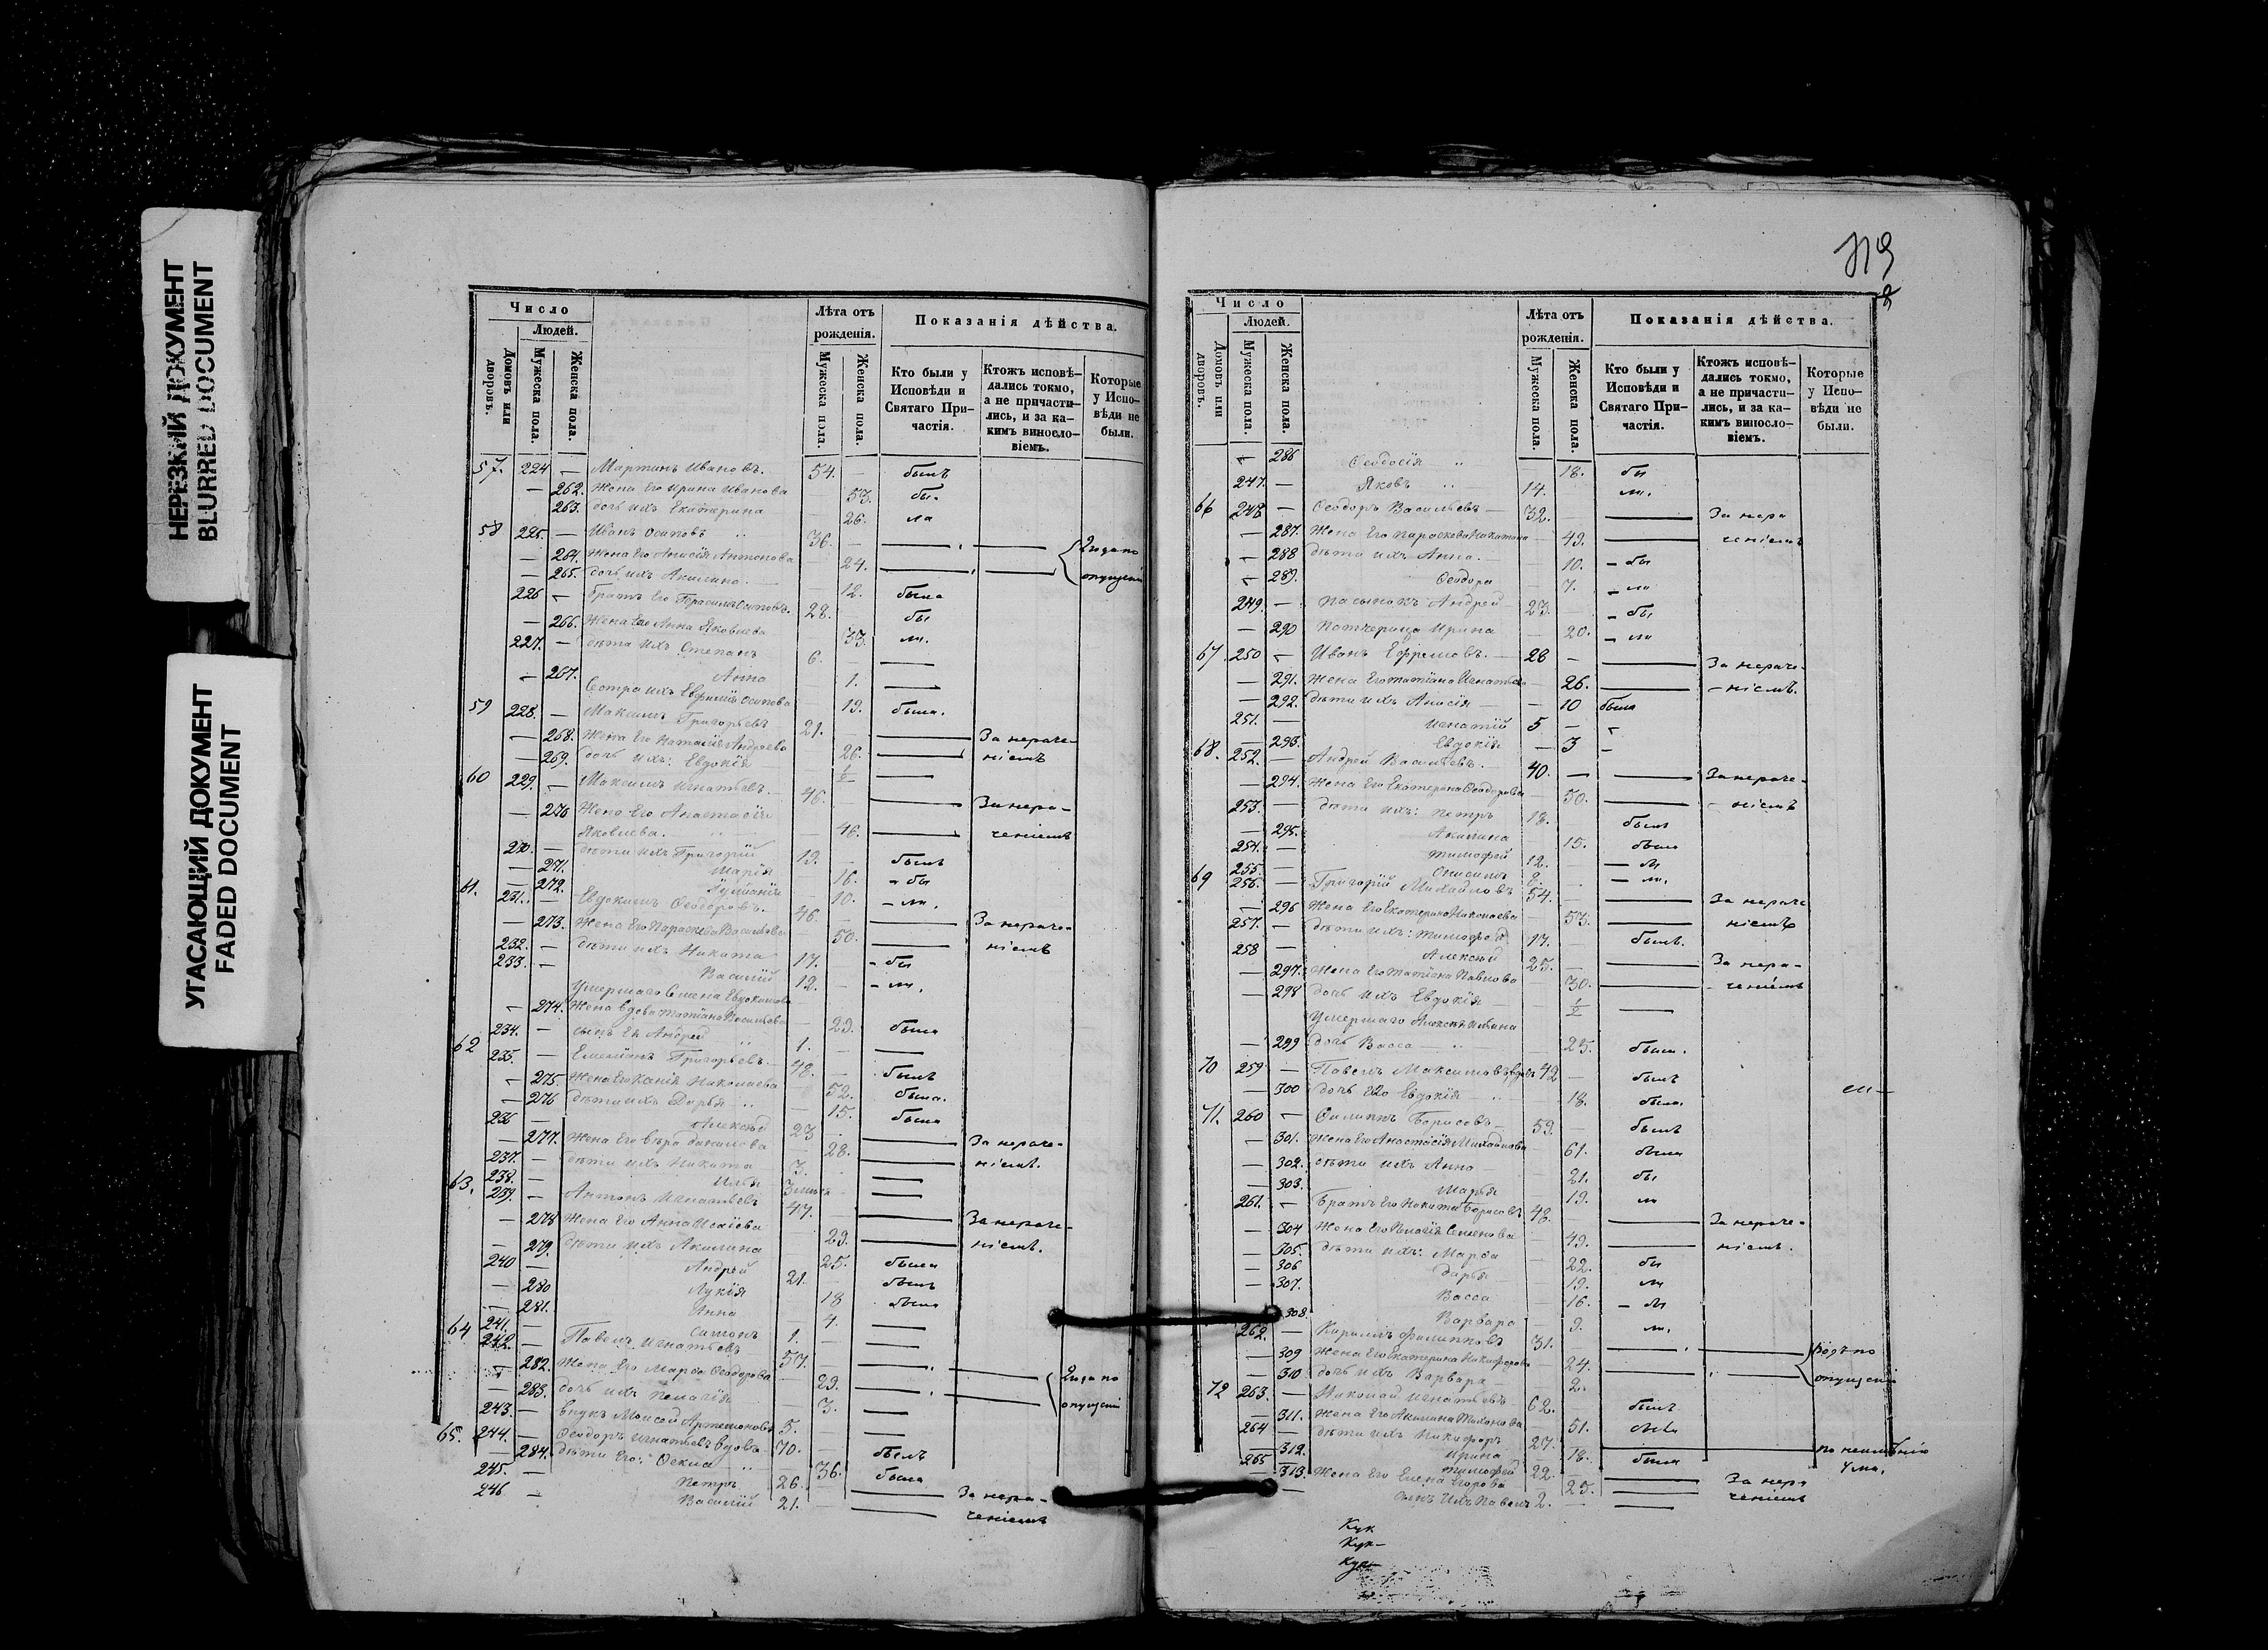 НЕРЕЗКИЙ ДОКУМЕНТ
BLURRED DOCUMENT
УГАСАЮЩИЙ ДОКУМЕНТ
FADED DOCUMENT
Число
Людей.
Домовъ или дворовъ.
Мужеска пола.
Женска пола.
Лѣта отъ рожденія.
Мужеска пола.
Женска пола.
Показанія дѣйства.
Кто были у Исповѣди и Святаго Причастія.
Ктожъ исповѣдались токмо, а не причастились, и за какимъ винословіемъ.
Которые у Исповѣди не были.
57. 224 — Мартинъ Ивановъ. 54. — былъ
— 262. Жена Его Ирина Иванова 53. бы-
— 263. дочь ихъ Екатерина 26. ла
58 225. — Иванъ Осиповъ 36. —
— 264. Жена Его Анисія Антонова 24. 2 года по
— 265. дочь ихъ Акилина 12. была опущен
226 — Братъ Его Герасимъ Осиповъ. 28. бы
— 266. Жена Его Анна Яковлева 33. ли.
227. — дѣти ихъ Степанъ 6. —
— 267. Анна 1. —
Сестра ихъ Евфимія Осипова 19. была.
59 228. — Максимъ Григорьевъ 21. За нераче-
— 268. Жена Его Наталія Андреева 26. ніемъ
— 269. дочь ихъ: Евдокія 1/2 —
60 229. — Максимъ Игнатьевъ. 46. За нера-
— 270 Жена Его Анастасія
Яковлева. 46. ченіемъ
230. — дѣти ихъ Григорій 19. — былъ
— 271. Марія 16. - бы
— 272. Іуліанія 10. - ли.
61. 231. — Евдокимъ Ѳеодоровъ. 46 — За нераче-
— 273. Жена Его Параскева Васильева 50. ніемъ
232. — дѣти ихъ Никита 17. - бы
233. — Василій 12. - ли.
Умершаго Семена Евдокимова
— 274. Жена вдова Татіана Васильева 29. была
234. — сынъ Ея Андрей 1. —
62 235. — Емеліанъ Григорьевъ. 48. — былъ
— 275. Жена Его Ксенія Николаева 52. была.
— 276 дѣти ихъ Дарья 15. была
236 — Алексѣй 23 —
— 277. Жена Его Вѣра Данилова 28. За нераче-
237. — дѣти ихъ Никита 3. ніемъ.
238. — Илья
63. 239. — Антонъ Игнатьевъ 47.
— 278 Жена Его Анна Исаіева 29. За нераче-
— 279. дѣти ихъ Акилина 25. была ніемъ.
240 — Андрей 21. былъ
— 280 Лукія 18 была
— 281. Анна 4. —
241. — Симонъ 1. —
64 242. — Павелъ Игнатьевъ 57.
— 282. Жена Его Марѳа Ѳеодорова 29. 2 года по
— 283. дочь ихъ Пелагія 3. опущен
243. — внукъ Моисей Артемоновъ 5.
65. 244. — Ѳеодоръ Игнатьевъ вдовъ 70. былъ
— 284. дѣти Его: Ѳекла 36. была
245. — Петръ 26. За нера-
246 — Василій 21. ченіемъ
319
Число
Людей.
Домовъ или дворовъ.
Мужеска пола.
Женска пола.
Лѣта отъ рожденія.
Мужеска пола.
Женска пола.
Показанія дѣйства.
Кто были у Исповѣди и Святаго Причастія.
Ктожъ исповѣдались токмо, а не причастились, и за какимъ винословіемъ.
Которые у Исповѣди не были.
— 286 Ѳеодосія 18. бы
247. — Яковъ 14. ли.
66 248 — Ѳеодоръ Васильевъ 32. За нера
— 287. Жена Его Параскева Никитина 49. ченіемъ
— 288 дѣти ихъ Анна 10. - бы
— 289. Ѳеодора 7. - ли
249. — пасынокъ Андрей 23. - бы
— 290 Потчерица Ирина 20. - ли
67. 250 — Иванъ Ефремовъ. 28 — За нераче-
— 291. Жена Его Татіана Игнатьева 26. - ніемъ.
— 292. дѣти ихъ Анисія 10 была
251. — Игнатій 5 —
— 293. Евдокія — 3 —
68. 252. — Андрей Васильевъ. 40. — За нераче-
— 294. Жена Его Екатерина Ѳеодорова 50. - ніемъ
253. — дѣти ихъ: Петръ 18. былъ
— 295. Акилина 15. была
254. — Тимофей 12. — бы
255. — Онисимъ 8. — ли.
69 256. — Григорій Михайловъ 54. За нераче
— 296 Жена Его Екатерина Николаева 53. ніемъ
257. — дѣти ихъ: Тимофей 17. былъ.
258 — Алексѣй 25. За нера-
— 297. Жена Его Татіана Павлова 30. - ченіемъ
— 298 дочь ихъ Евдокія 1/2 —
Умершаго Алексѣя Ильина
— 299 дочь Васса 25. была.
70 259 — Павелъ Максимовъ вдовъ 42 былъ
— 300 дочь Его Евдокія 18. была.
71. 260 — Филиппъ Борисовъ 59. былъ
— 301. Жена Его Анастасія Михайлова 61. была
— 302. дѣти ихъ Анна 21. бы
— 303. Марья 19. ли
261. — Братъ Его Никита Борисовъ 48. За нераче-
— 304 Жена Его Пелагія Семенова 49. ніемъ.
— 305. дѣти ихъ: Марѳа 22. бы
— 306 Дарья 19. ли
— 307. Васса 16. — бы
308. Варвара 9. ли.
262. — Кириллъ Филипповъ 31.
— 309 Жена Его Екатерина Никифорова 24. годъ по
— 310 дочь ихъ Варвара 2. опущен
72 263. — Николай Игнатьевъ 62. былъ
— 311. Жена Его Акилина Тихонова 51. была
264 — дѣти ихъ Никифоръ 27. по неимѣнію
— 312. Ирина 18. была ума.
265 — Тимофей 22. За нера
— 313. Жена Его Елена Егорова 25. ченіемъ
сынъ ихъ Павелъ 2.
Кук
Кук-
Кук